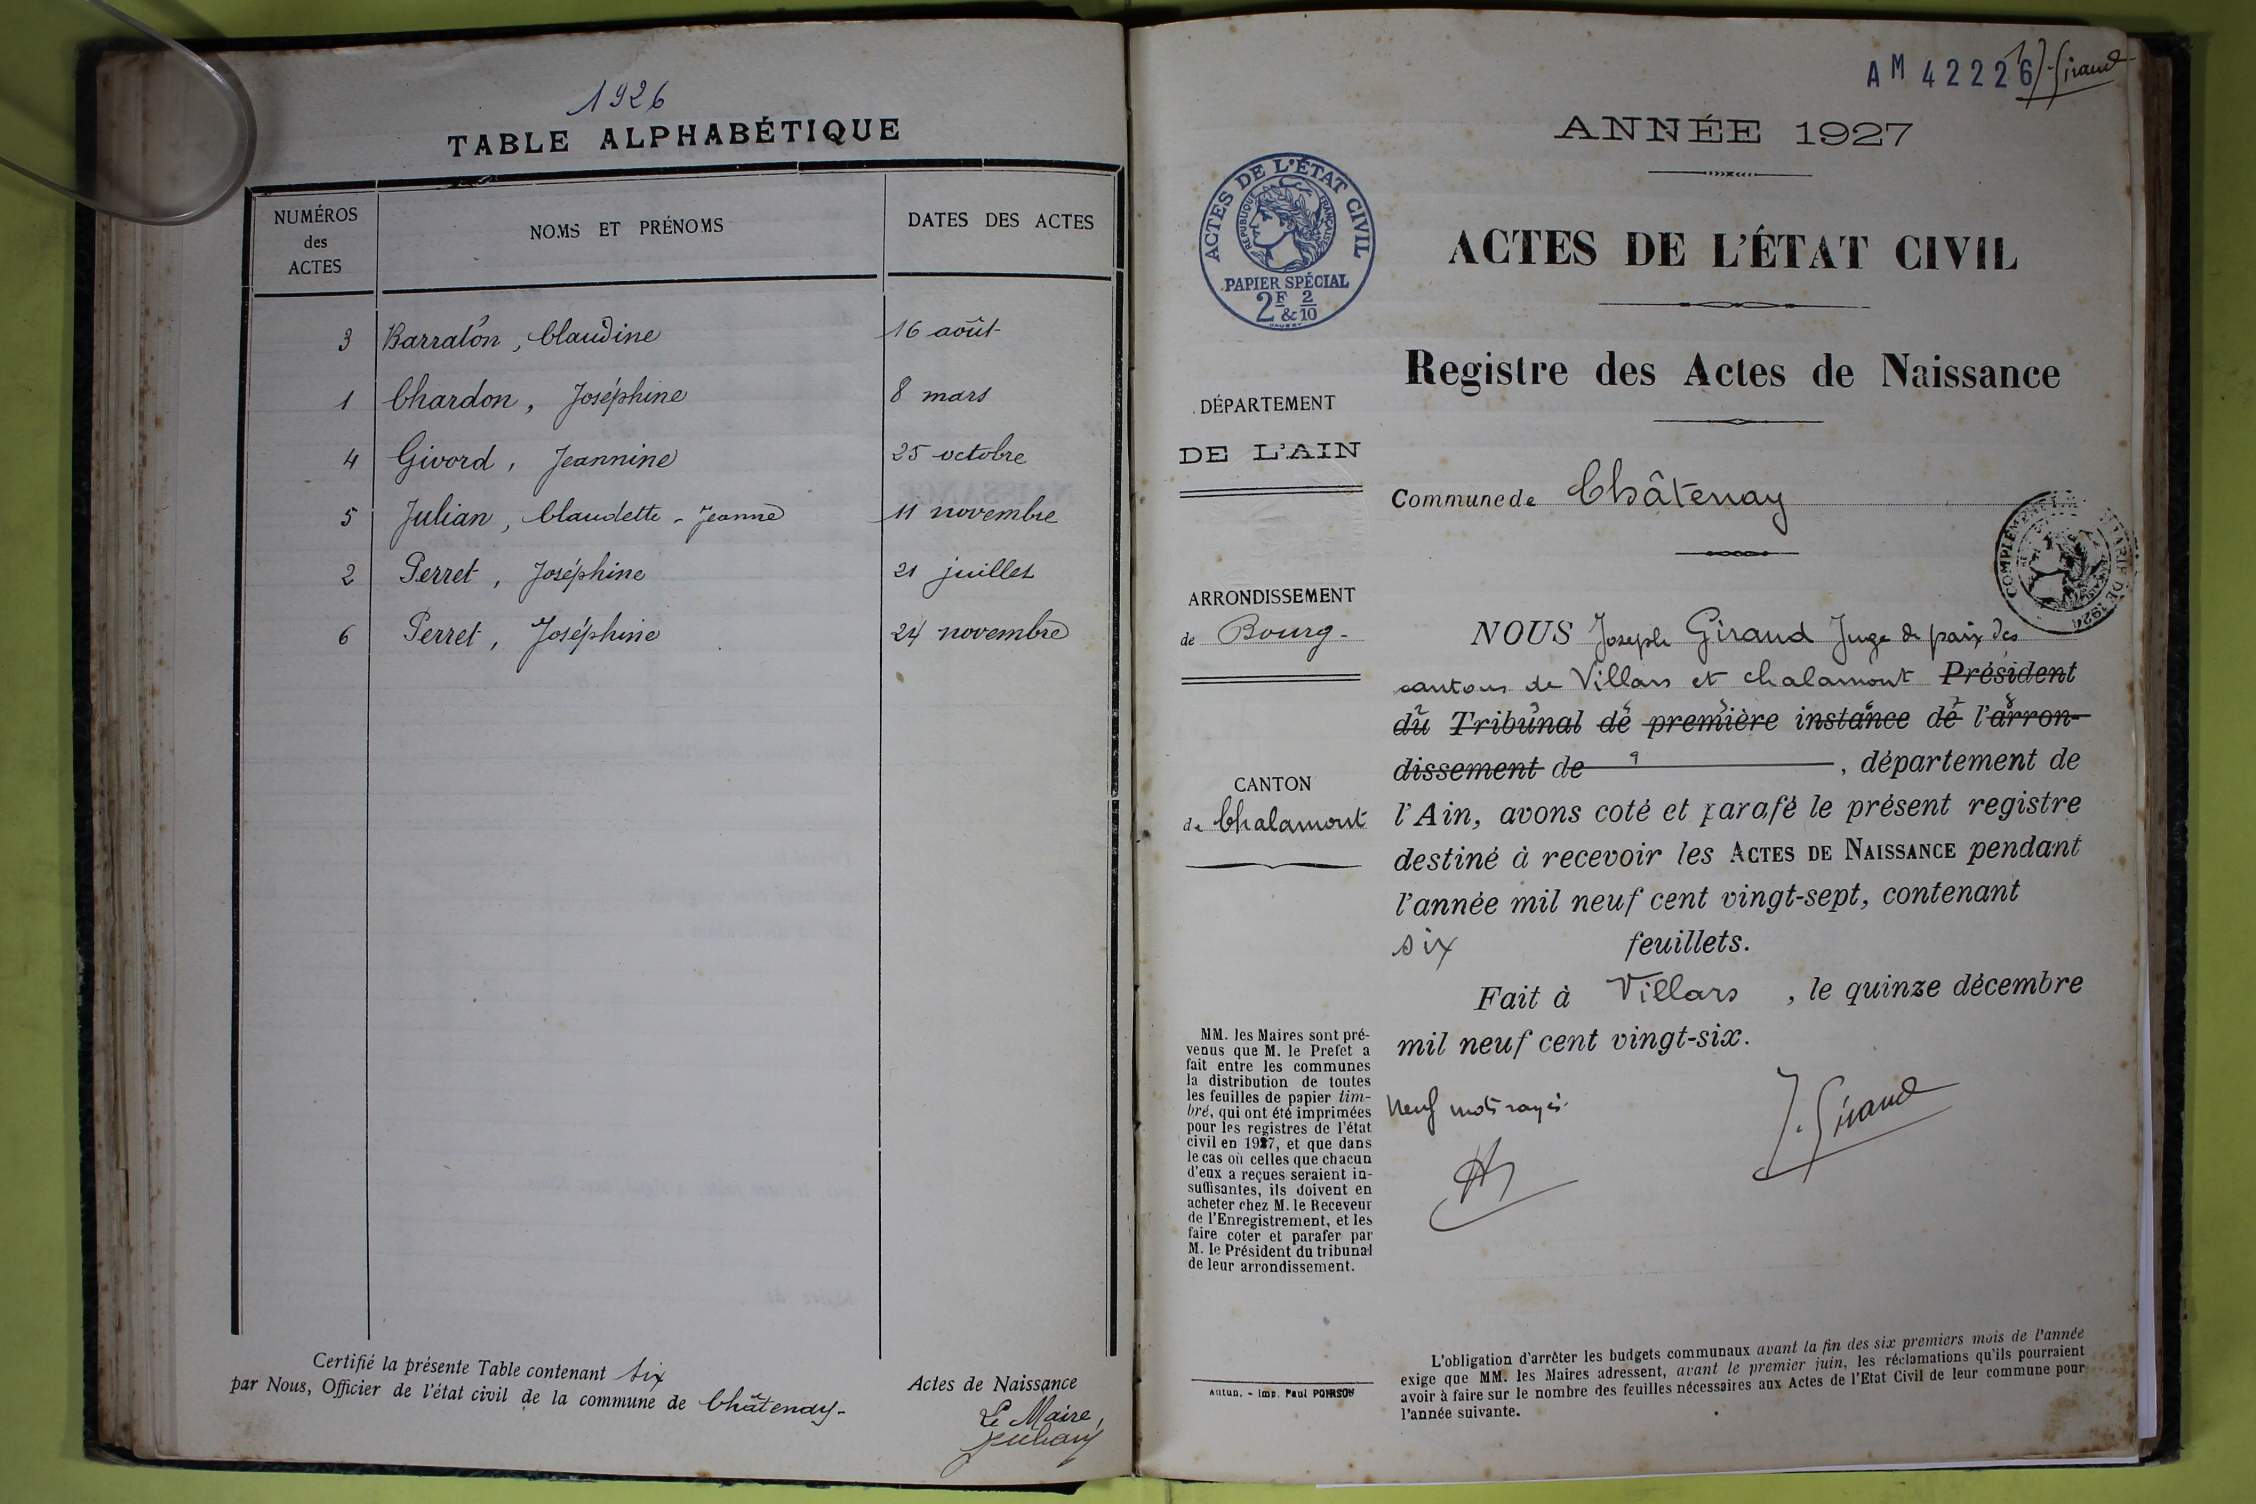 1926
TABLE ALPHABÉTIQUE
NUMÉROS des ACTES
NOMS ET PRÉNOMS
DATES DES ACTES
3 Barralon, Claudine 16 août
1 Chardon, Joséphine 8 mars
4 Givord, Jeannine 25 octobre
5 Julian, Claudette - Jeanne 11 novembre
2 Perret, Joséphine 21 juillet
6 Perret, Joséphine 24 novembre
Certifié la présente Table contenant six Actes de Naissance
par Nous, Officier de l'état civil de la commune de Châtenay-
Le Maire,
AM 42226
J. Giraud
ANNÉE 1927
ACTES DE L'ÉTAT CIVIL
RÉPUBLIQUE FRANÇAISE
PAPIER SPÉCIAL
2F & 2/10
ACTES DE L'ÉTAT CIVIL
Registre des Actes de Naissance
DÉPARTEMENT
DE L'AIN
Commune de Châtenay
ARRONDISSEMENT
de Bourg-
CANTON
de Chalamont
NOUS Joseph Giraud Juge de paix des
cantons de Villars et Chalamont Président
du Tribunal de première instance de l'arron-
dissement de , département de
l'Ain, avons coté et parafé le présent registre
destiné à recevoir les ACTES DE NAISSANCE pendant
l'année mil neuf cent vingt-sept, contenant
six feuillets.
Fait à Villars, le quinze décembre
mil neuf cent vingt-six.
Neuf mots rayés.
J. Giraud
MM. les Maires sont pré-
venus que M. le Prefet a
fait entre les communes
la distribution de toutes
les feuilles de papier tim-
bré, qui ont été imprimées
pour les registres de l'état
civil en 1927, et que dans
le cas où celles que chacun
d'eux a reçues seraient in-
suffisantes, ils doivent en
acheter chez M. le Receveur
de l'Enregistrement, et les
faire coter et parafer par
M. le Président du tribunal
de leur arrondissement.
Autun. - Imp. Paul POIRSON
L'obligation d'arrêter les budgets communaux avant la fin des six premiers mois de l'année
exige que MM. les Maires adressent, avant le premier juin, les réclamations qu'ils pourraient
avoir à faire sur le nombre des feuilles nécessaires aux Actes de l'Etat Civil de leur commune pour
l'année suivante.